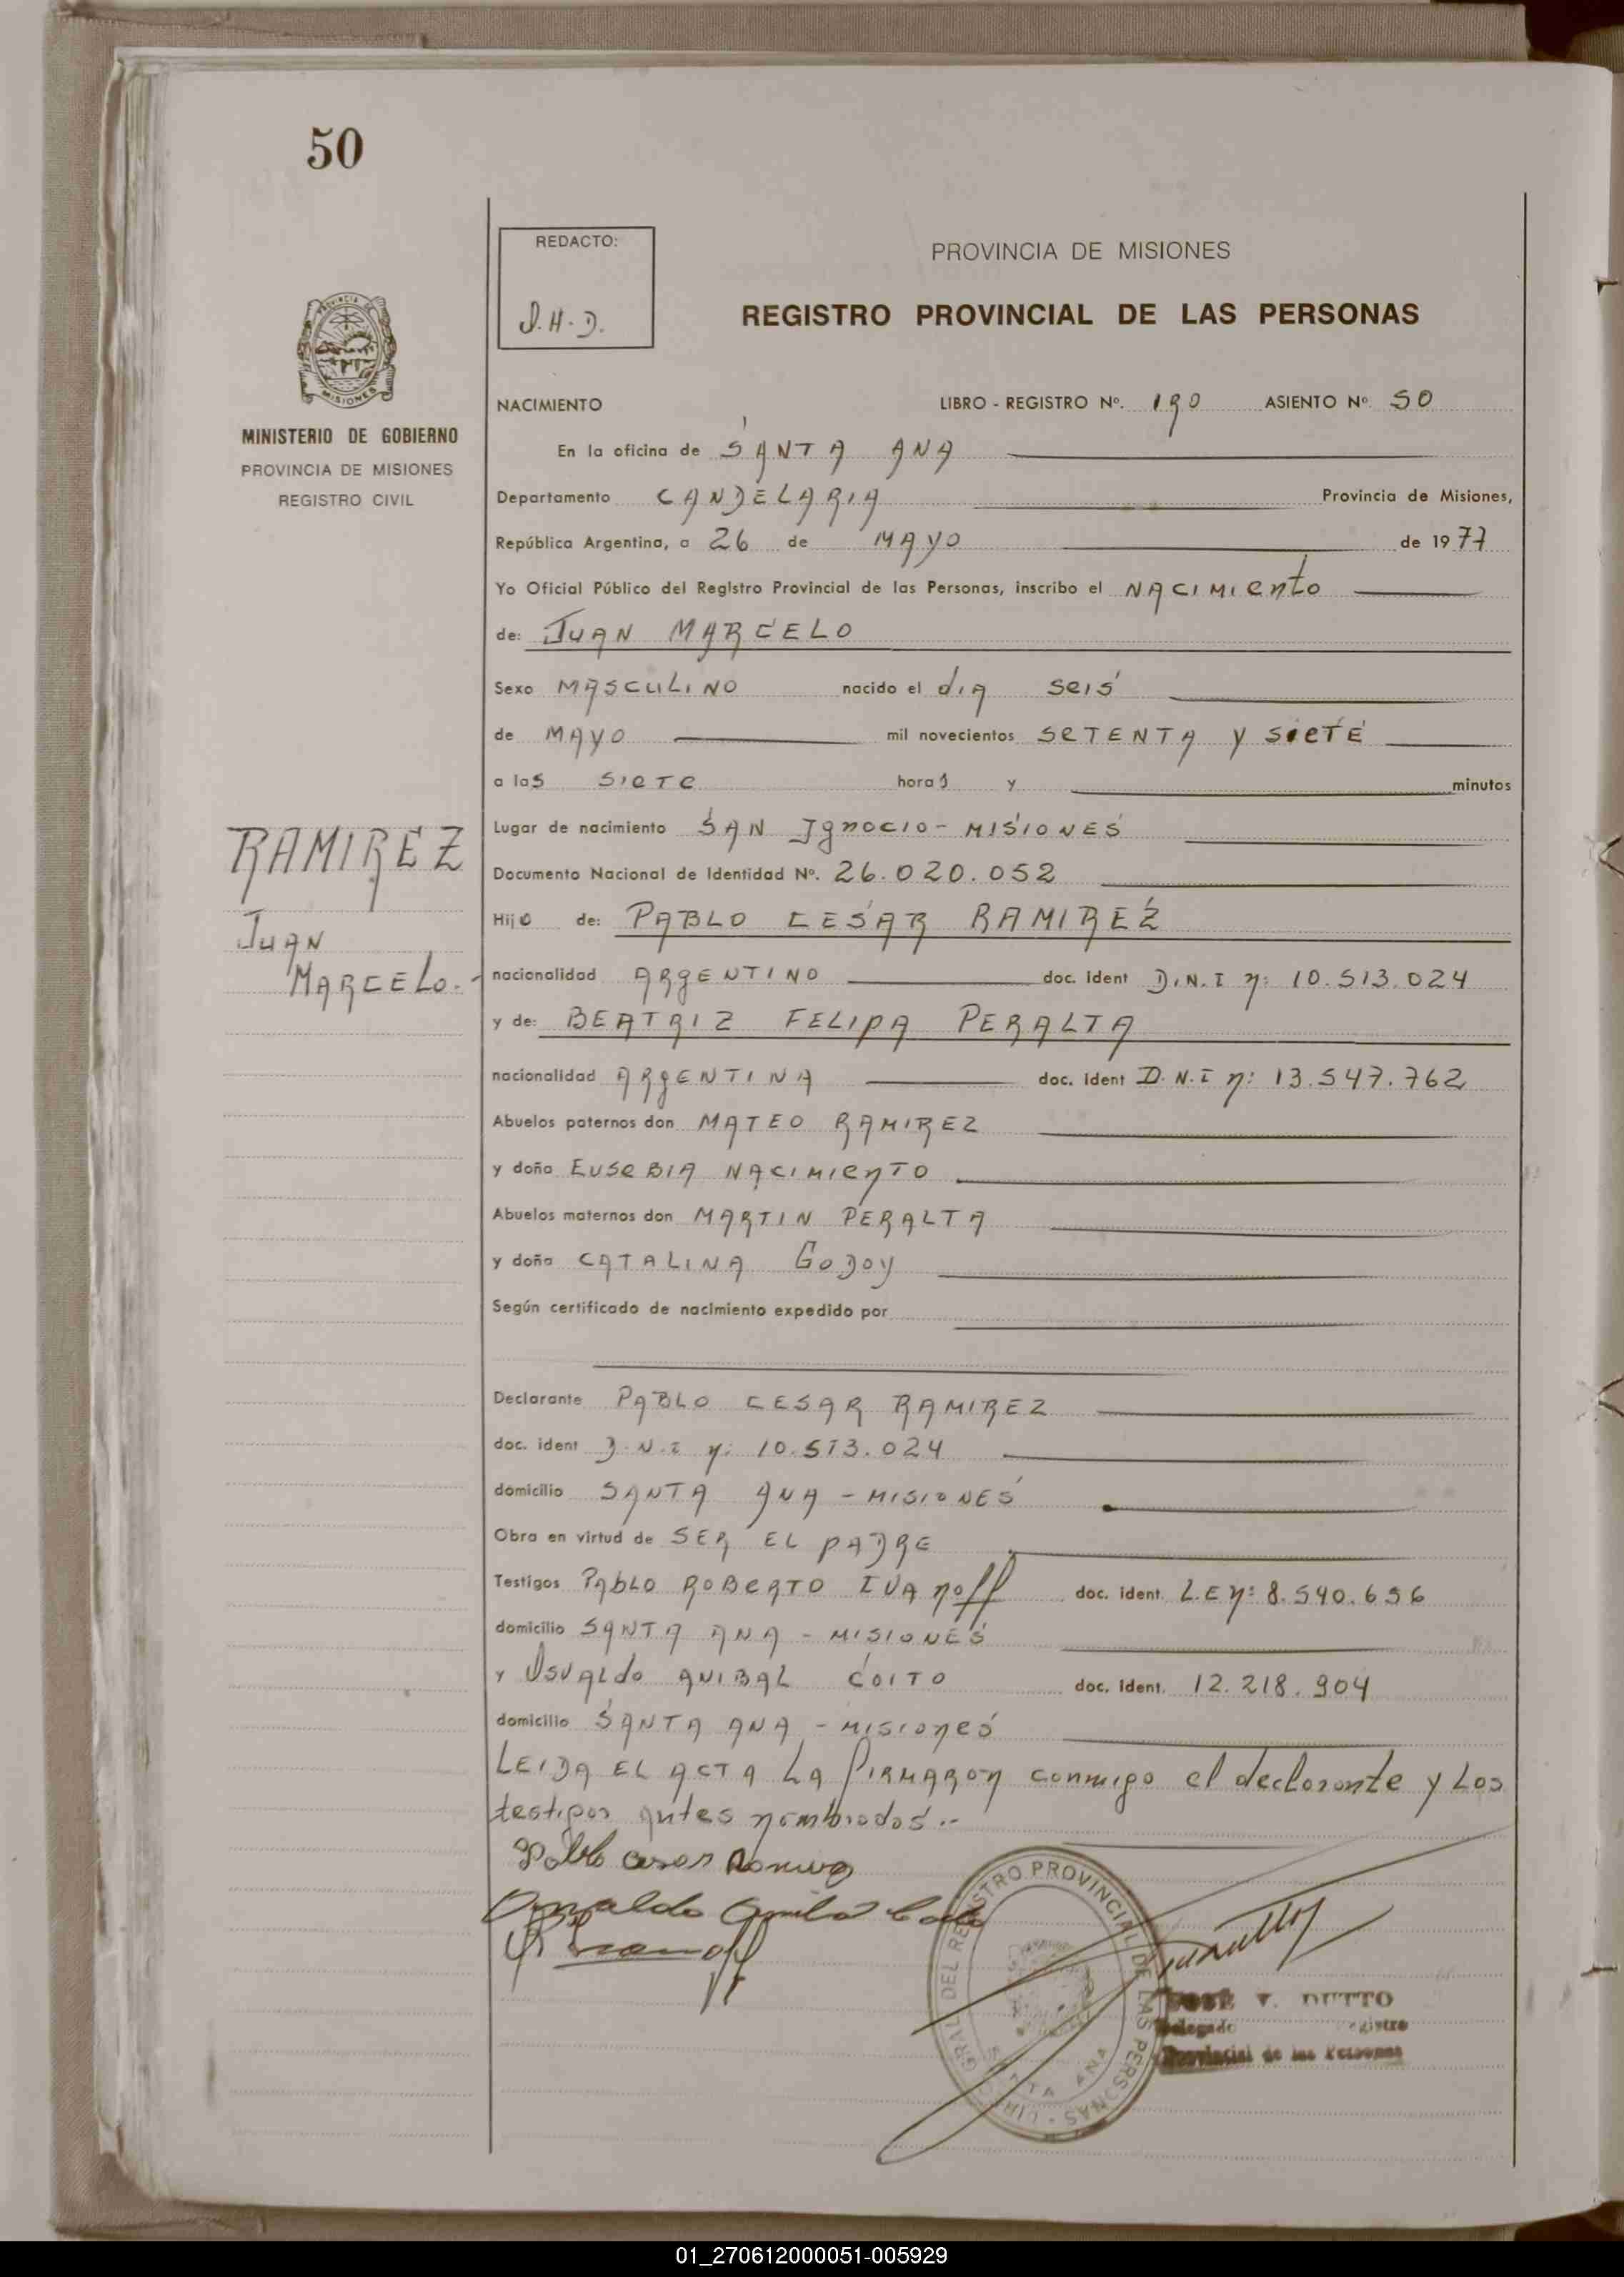 50
REDACTO:
J.H.D.
PROVINCIA DE MISIONES
REGISTRO PROVINCIAL DE LAS PERSONAS
PROVINCIA DE
MISIONES
MINISTERIO DE GOBIERNO
PROVINCIA DE MISIONES
REGISTRO CIVIL
NACIMIENTO LIBRO - REGISTRO Nº. 190 ASIENTO Nº. 50
En la oficina de SANTA ANA
Departamento CANDELARIA Provincia de Misiones,
República Argentina, a 26 de MAYO de 1977
Yo Oficial Público del Registro Provincial de las Personas, inscribo el NACIMIENTO
de: JUAN MARCELO
Sexo MASCULINO nacido el día SEIS
de MAYO mil novecientos SETENTA y SIETE
a las SIETE horas y minutos
Lugar de nacimiento SAN Ignacio - MISIONES
Documento Nacional de Identidad Nº. 26.020.052
RAMIREZ
JUAN
MARCELO.-
Hijo de: PABLO CESAR RAMIREZ
nacionalidad ARGENTINO doc. ident D.N.I n: 10.513.024
y de: BEATRIZ FELIPA PERALTA
nacionalidad ARGENTINA doc. ident D.N.I n: 13.547.762
Abuelos paternos don MATEO RAMIREZ
y doña EUSEBIA NACIMIENTO
Abuelos maternos don MARTIN PERALTA
y doña CATALINA GODOY
Según certificado de nacimiento expedido por
Declarante PABLO CESAR RAMIREZ
doc. ident D.N.I n: 10.513.024
domicilio SANTA ANA - MISIONES
Obra en virtud de SER EL PADRE
Testigos PABLO ROBERTO IVANOFF doc. ident. L.E n: 8.540.656
domicilio SANTA ANA - MISIONES
y OSVALDO ANIBAL COITO doc. ident. 12.218.904
domicilio SANTA ANA - MISIONES
LEIDA EL ACTA LA FIRMARON conmigo el declarante y Los
testigos antes nombrados.-
Pablo cesar Ramirez
Osvaldo Anibal Coito
REGISTRO PROVINCIAL DE LAS PERSONAS
SANTA ANA
JOSE V. DUTTO
Delegado Registro
Provincial de las Personas
01_270612000051-005929